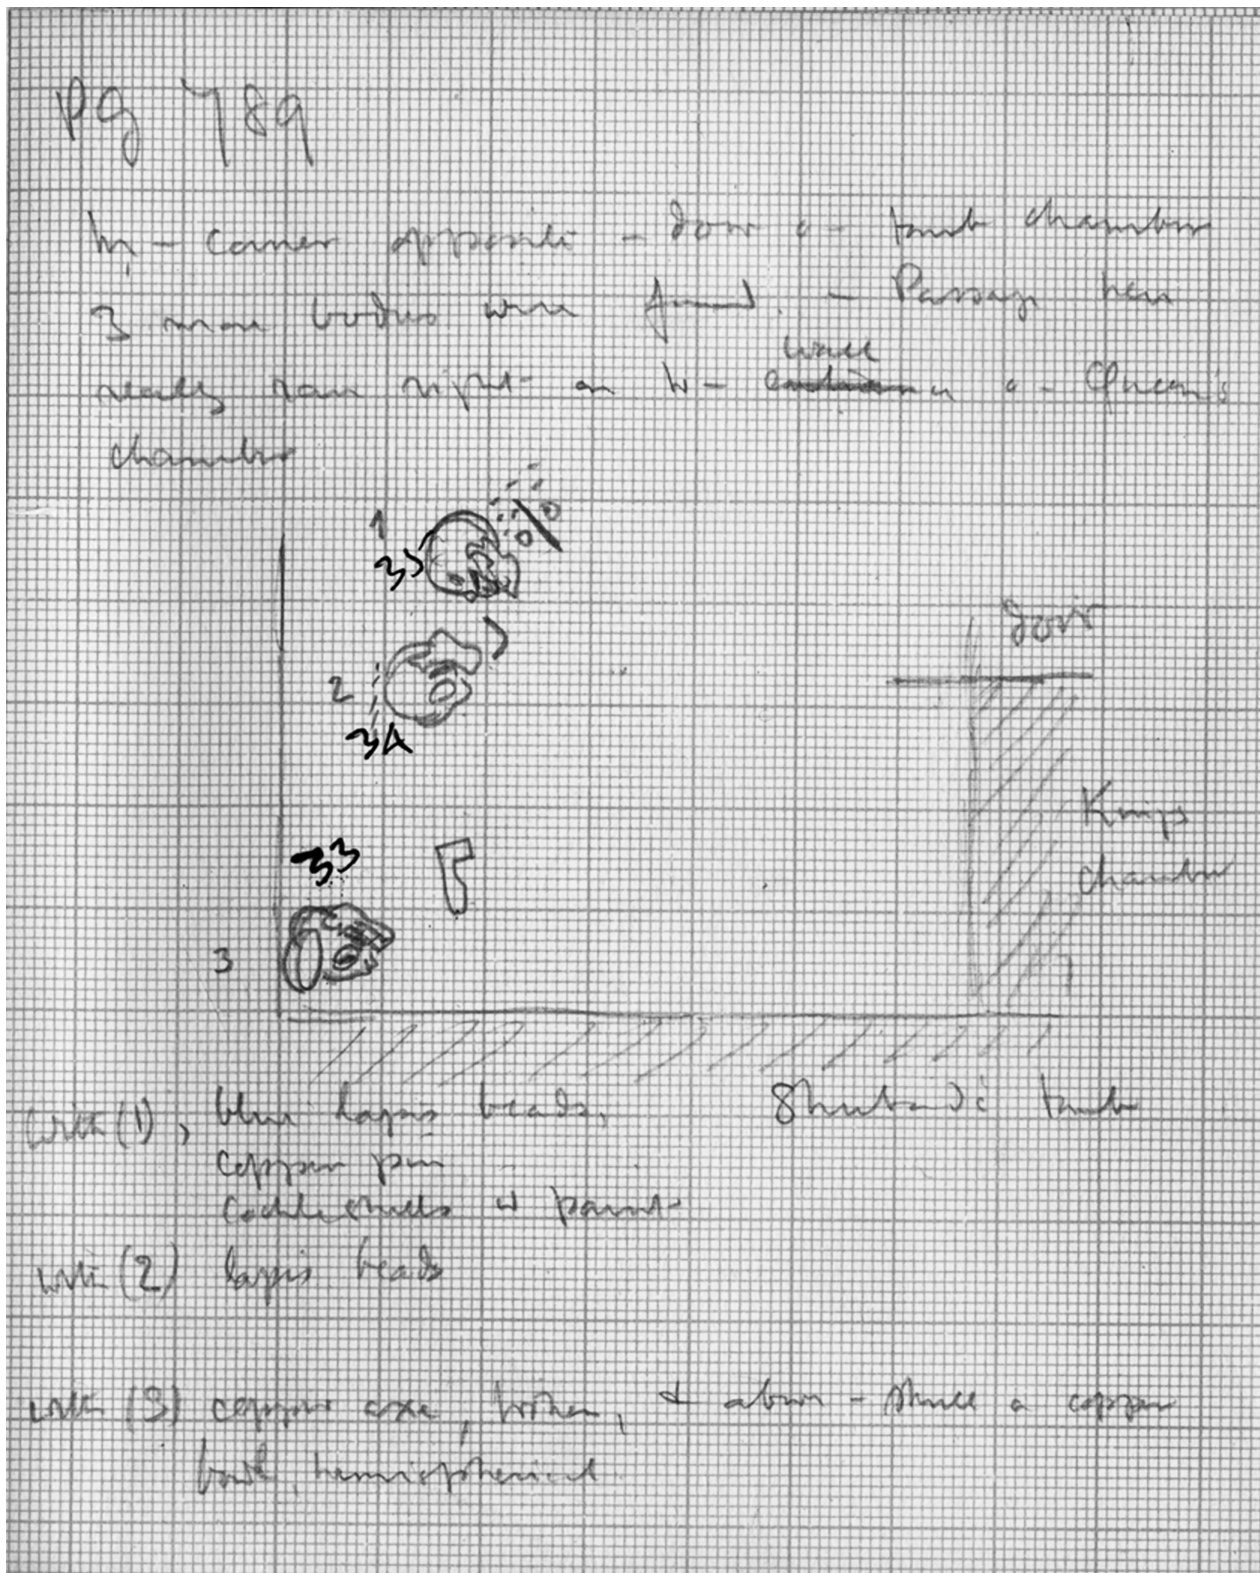 PG 789
In - corner opposite - door o - tomb chamber
3 more bodies were found. - Passage here
really ran right on to - wall o - Queen's
chamber
1
35
2
34
door
Kings
chamber
33
3
with (1), blue lapis beads,
copper pin
cockleshells w paint
Shubad's tomb
with (2) lapis beads
with (3) copper axe, broken, & above - skull a copper
bowl, hemispherical